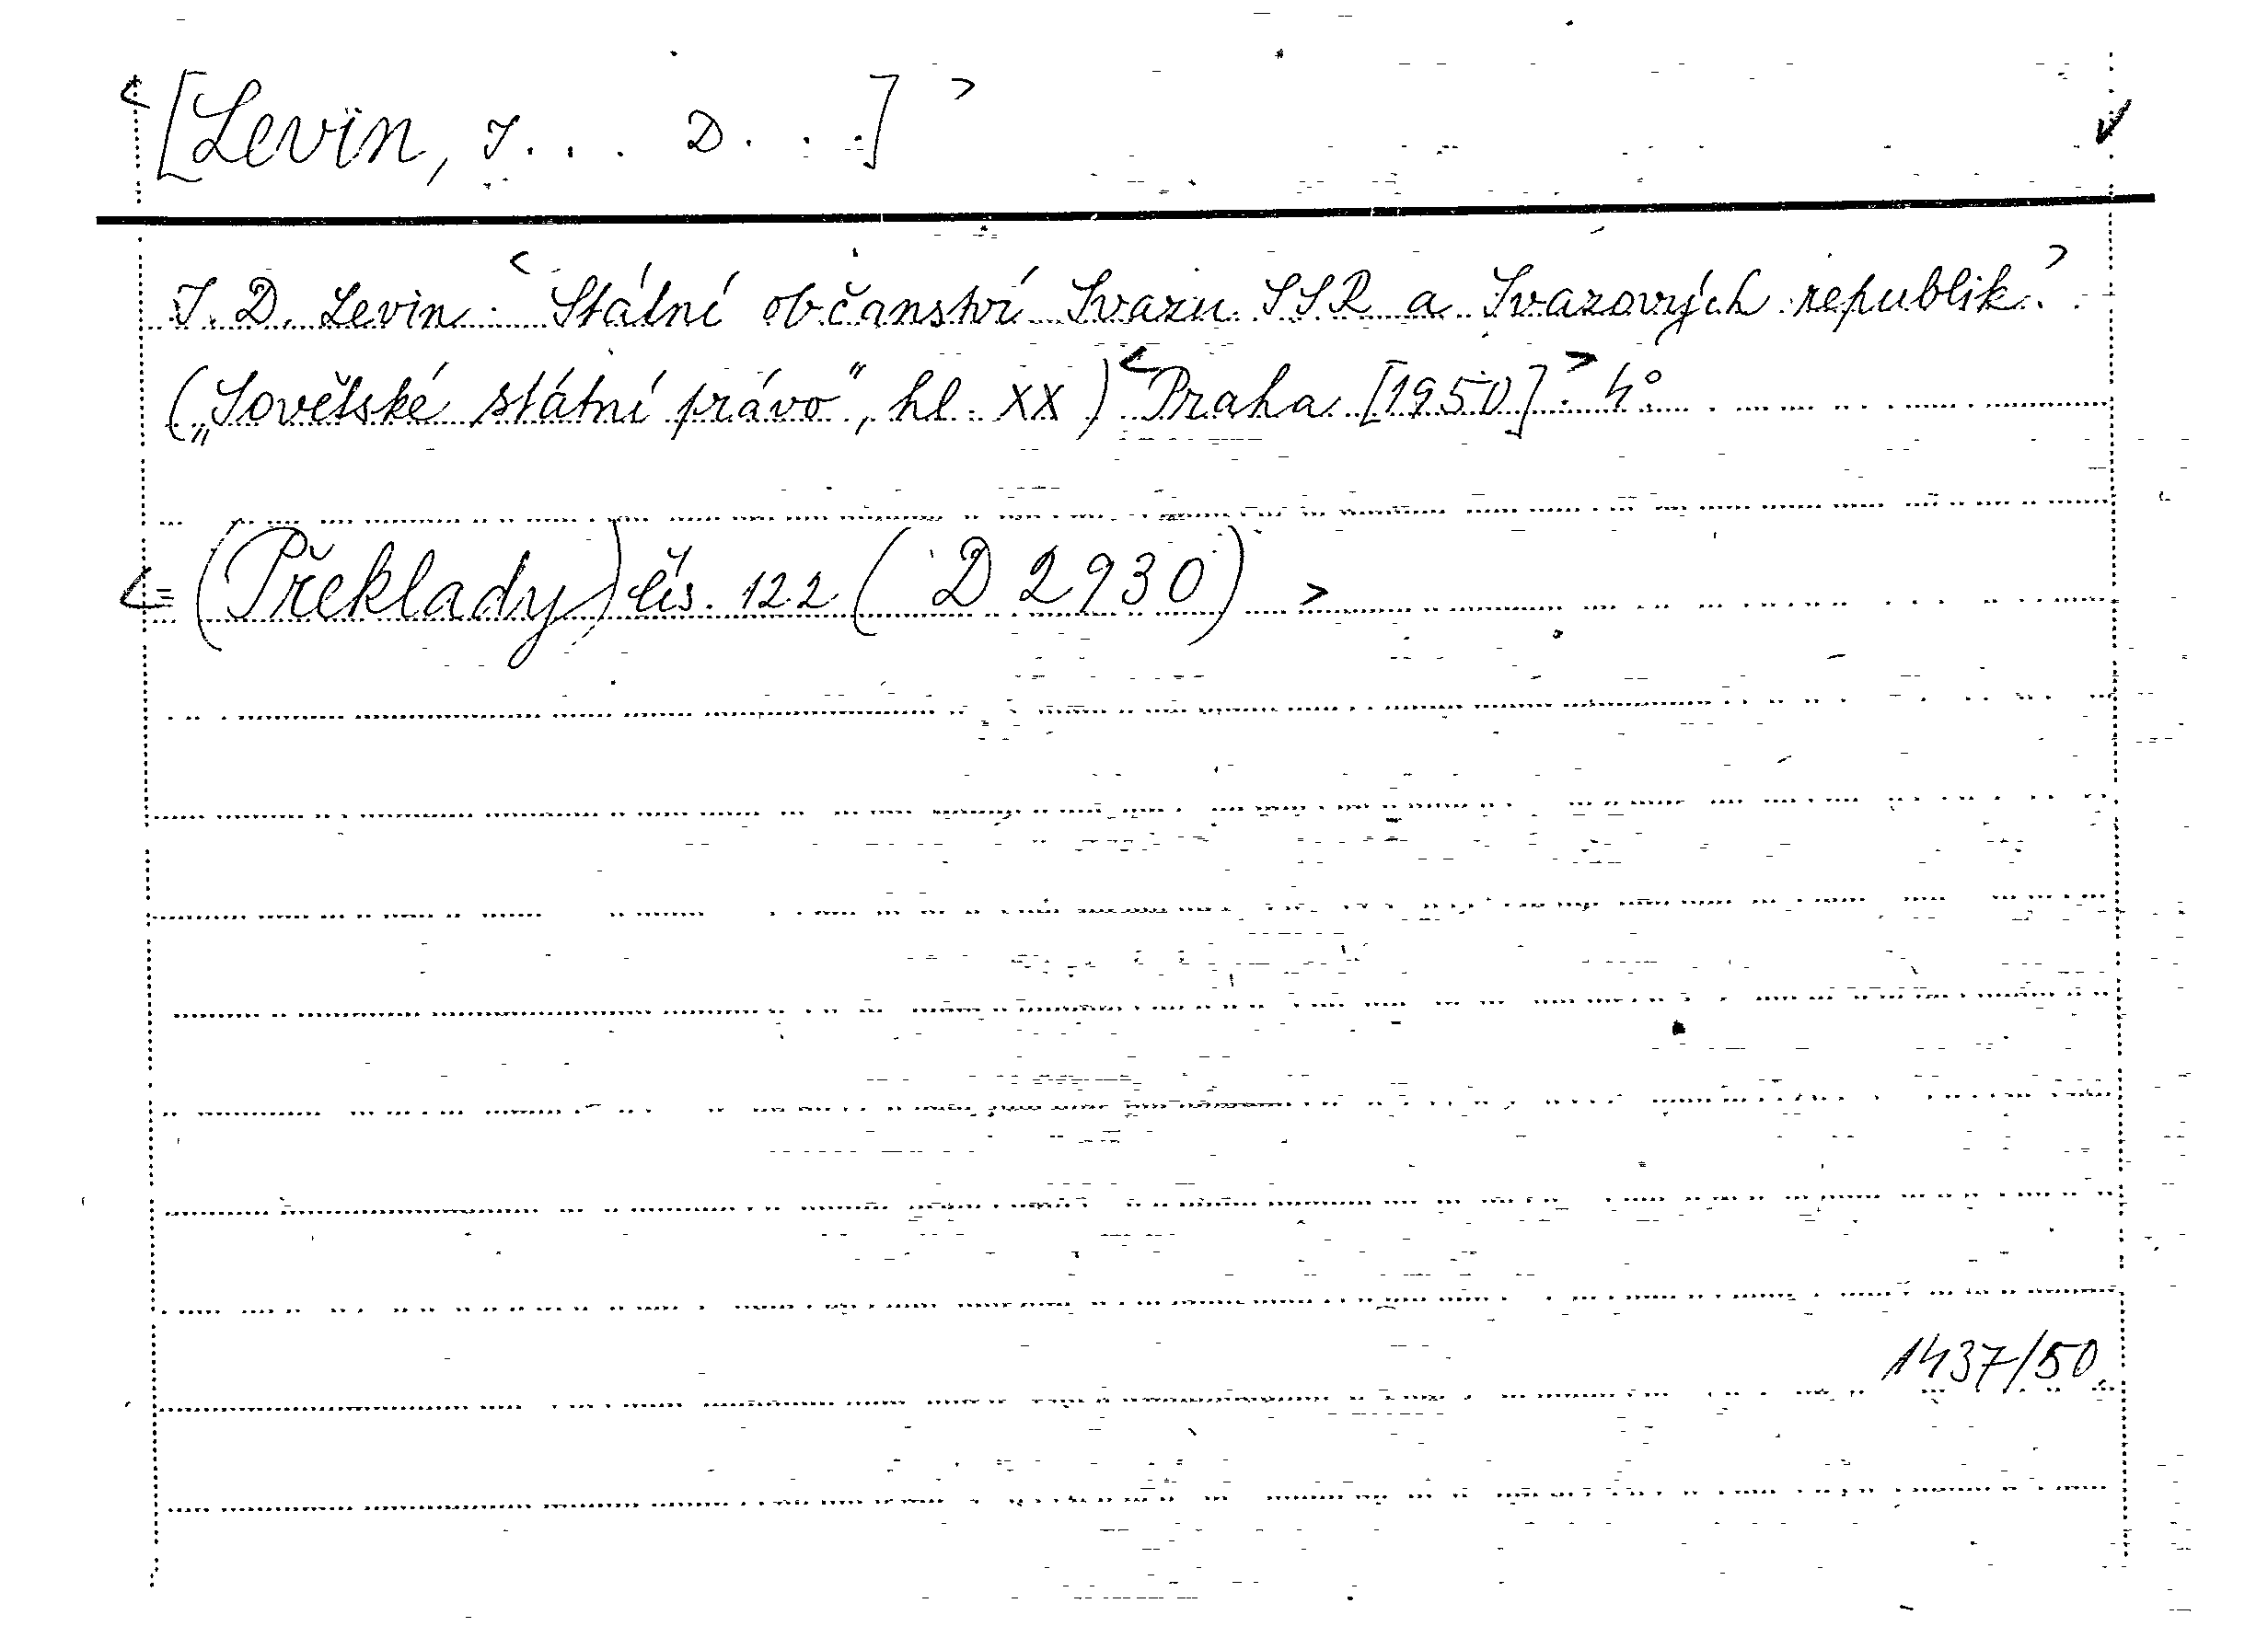 <[Levin, I... D...]>
I. D. Levin. <Státní občanství Svazu SSR a Svazových republik.>
(„Sovětské státní právo“, hl. XX) <Praha [1950].> 4°
<=(Překlady) čís. 122 (D 2930)>
1437/50